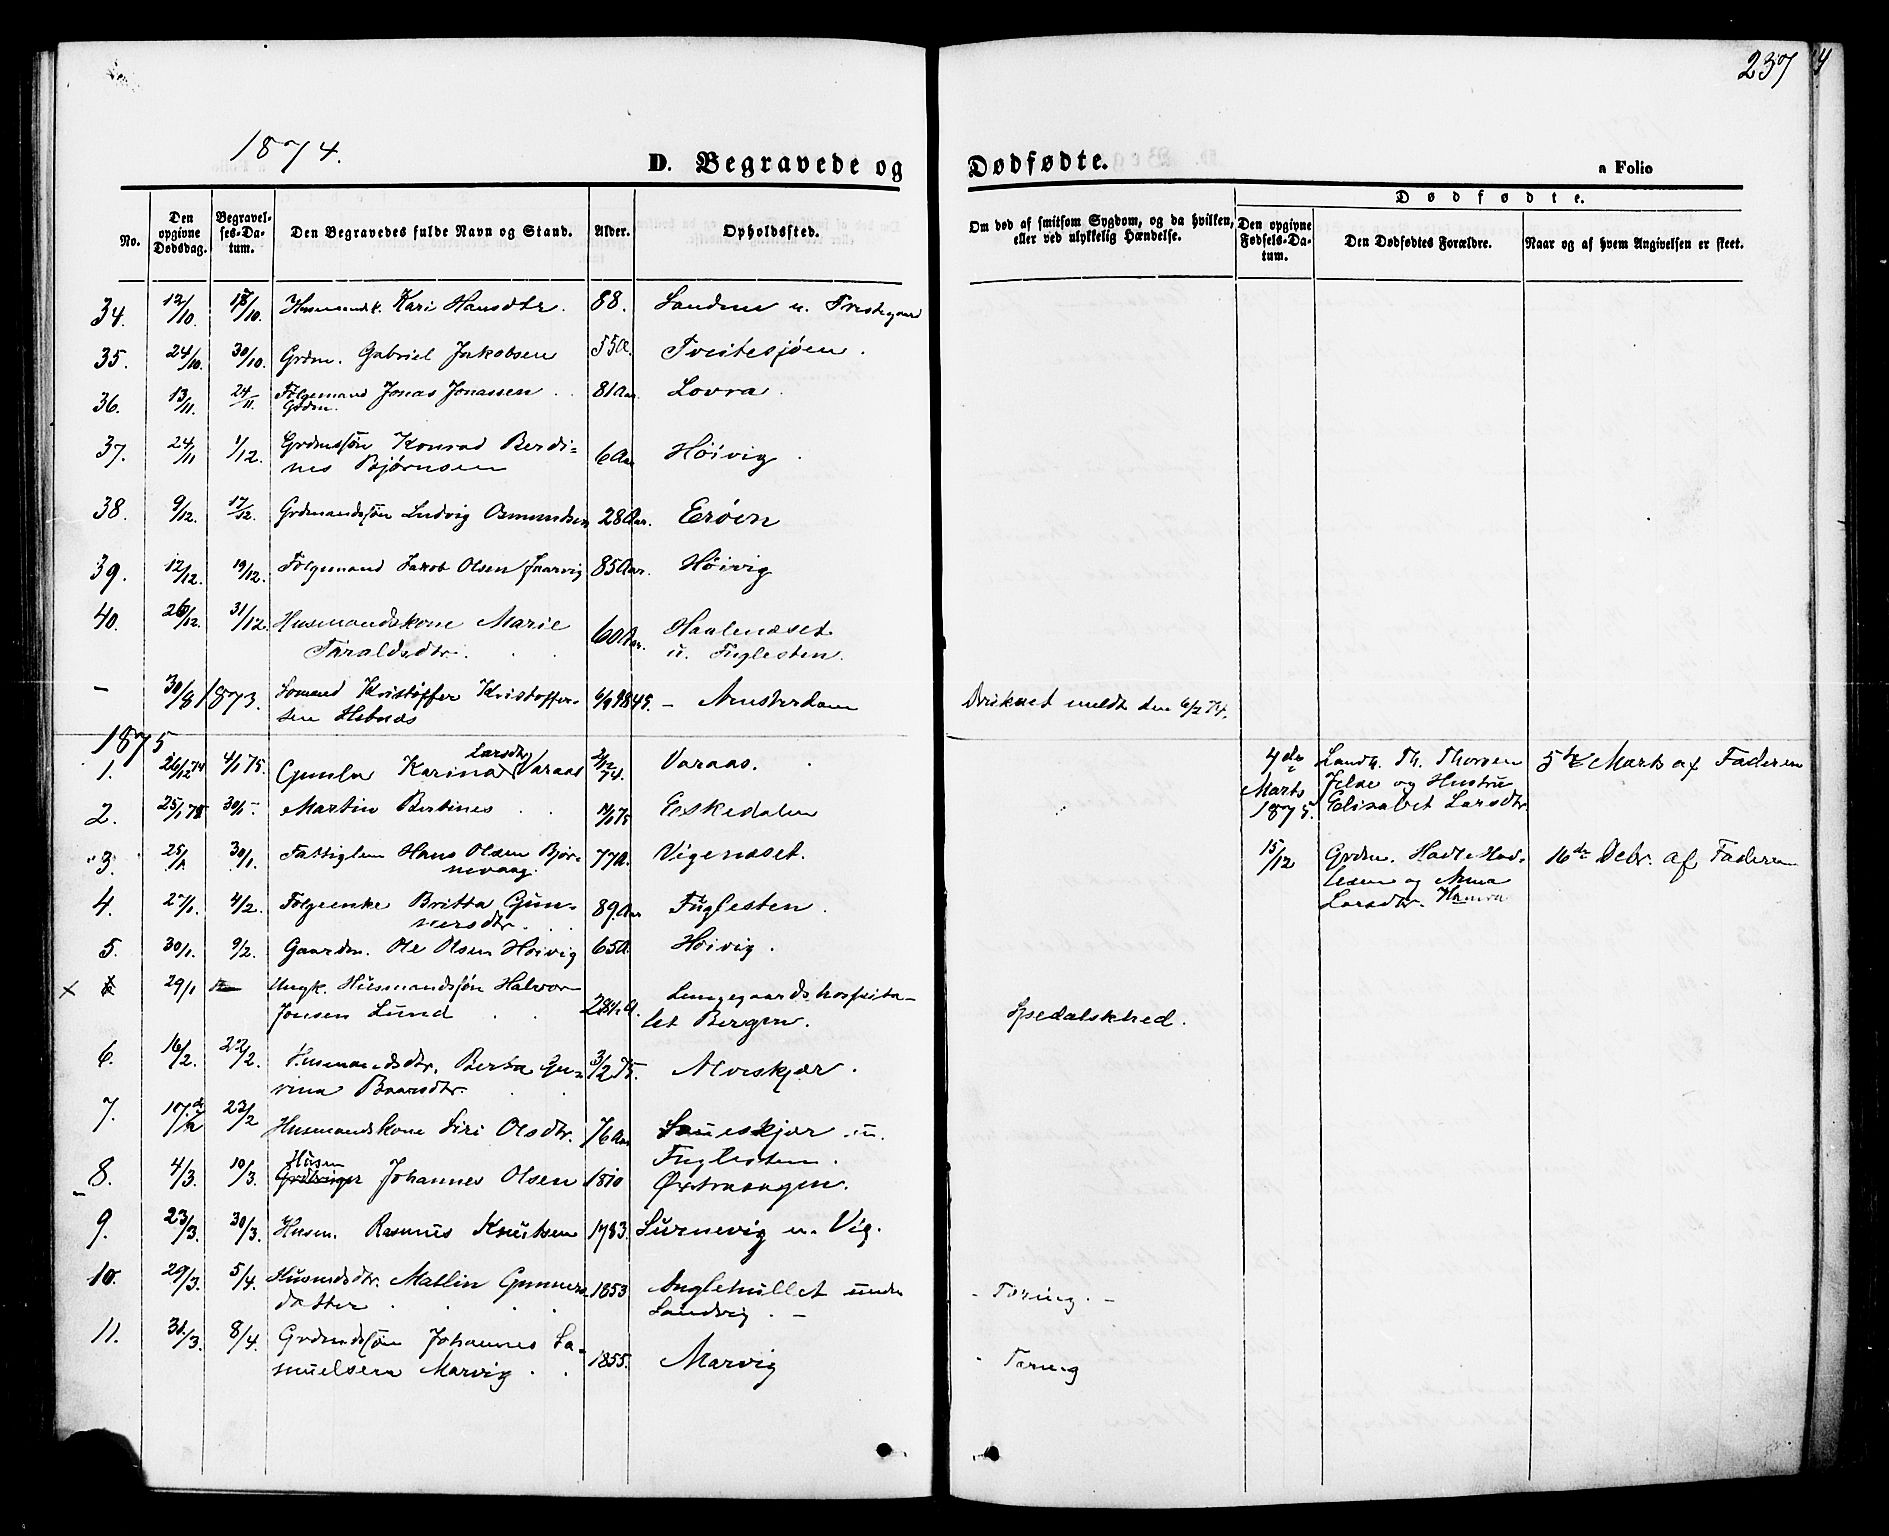 237
1874.
D. Begravede og
Dødfødte.
a Folio
No.
Den opgivne Dødsdag.
Begravelses-Datum.
Den Begravedes fulde Navn og Stand.
Alder.
Opholdssted.
Om død af smitsom Sygdom, og da hvilken, eller ved ulykkelig Hændelse.
Dødfødte.
Den opgivne Fødsels-Datum.
Den Dødfødtes Forældre.
Naar og af hvem Angivelsen er skeet.
34. 12/10. 18/10. Husmandsk. Kari Hansdtr. 88. Sanden u.
35. 24/10. 30/10. Grdm. Gabriel Jakobsen 55 A. Tveitesjøen.
36. 13/11. 24/11. Følgemand Jonas Jonassen 81 Aar. Lovra.
Grdm.
37. 24/11 1/12. Grdmssøn Konrad Berdi-
nes Bjørnsen 6 Aar Høivig.
38. 9/12. 17/12. Grdmandssøn Ludvig Osmundsen 28 Aar. Erøen
39. 12/12. 19/12. Følgemand Jakob Olsen Jaarvig 85 Aar. Høivig
40. 26/12. 31/12. Husmandskone Marie
Taraldsdtr. 60 Aar. Haalenæset
u. Fuglesten.
- 30/8 1873. Sømand Kristoffer Kristoffer-
sen Hebnes 6/9 1845. - Amsterdam Druknet meldt den 6/2 74.
1875
1. 26/12 74 4/1 75. Gunla Karina Larsdtr Varaas 2/12 74. Varaas.
4de Marts 1875. Landh. Th. Thorsen
Jelse og Hustru
Elisabet Larsdtr 5te Marts af Faderen
2. 25/1 75 30/1 - Martin Bertines 14/1 75 Eskedalen
3. 25/1 30/1. Fattiglem Hans Olsen Bjør-
nevaag. 77 A. Vigenæset.
15/12 Grdm. Hadle Had-
lesen og Anna
Larsdtr. Hamra 16de Debr. af Faderen
4. 27/1. 4/2. Følgeenke Britta Gun-
nersdtr. 89. Aar Fuglesten.
5. 30/1. 9/2. Gaardm. Ole Olsen Høivig 65 A. Høivig.
x 29/1 Ungk. Husmandssøn Halvor
Jonsen Lund 28 1/2 A. Lungegaardshospita-
let Bergen. Spedalskhed.
6. 16/2. 22/2. Husmandsdtr. Berta Gu-
rina Baarsdtr. 3/2 75. Alveskjær.
7. 17de/2 23/2 Husmandskone Siri Olsdtr. 76 Aar Saueskjær u.
Fuglesten.
8. 4/3. 10/3. Husm Johannes Olsen 1810 Østraangen.
9. 23/3. 30/3. Husm. Rasmus Knutsen 1783. Surnevig u. Vig.
10. 29/3. 5/4. Husmdsdtr. Mallin Gunners-
datter 1853 Anglehullet under
Sandvig. - - Tæring. -
11. 31./3. 8/4. Grdmdssøn Johannes Sa-
muelsen Marvig 1855. Marvig - Tæring